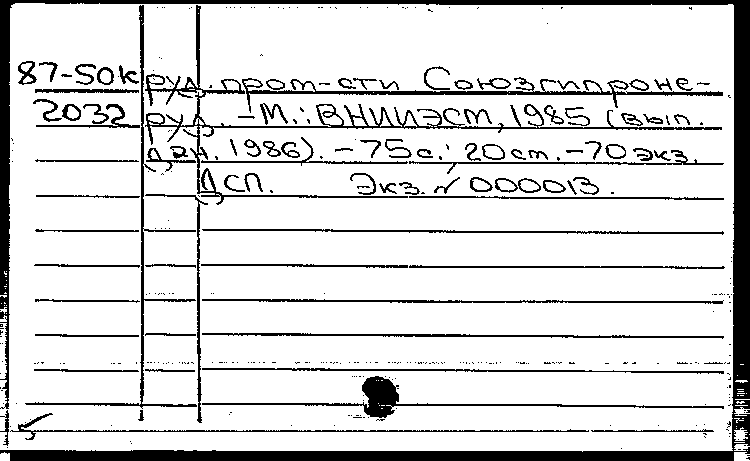 87-50к руд. пром-сти Союзгипроне-
2032 руд. - М.: ВНИИЭСМ, 1985 (вып.
дан. 1986). - 75 с.; 20 см. - 70 экз.
ДСП. Экз. № 000013.